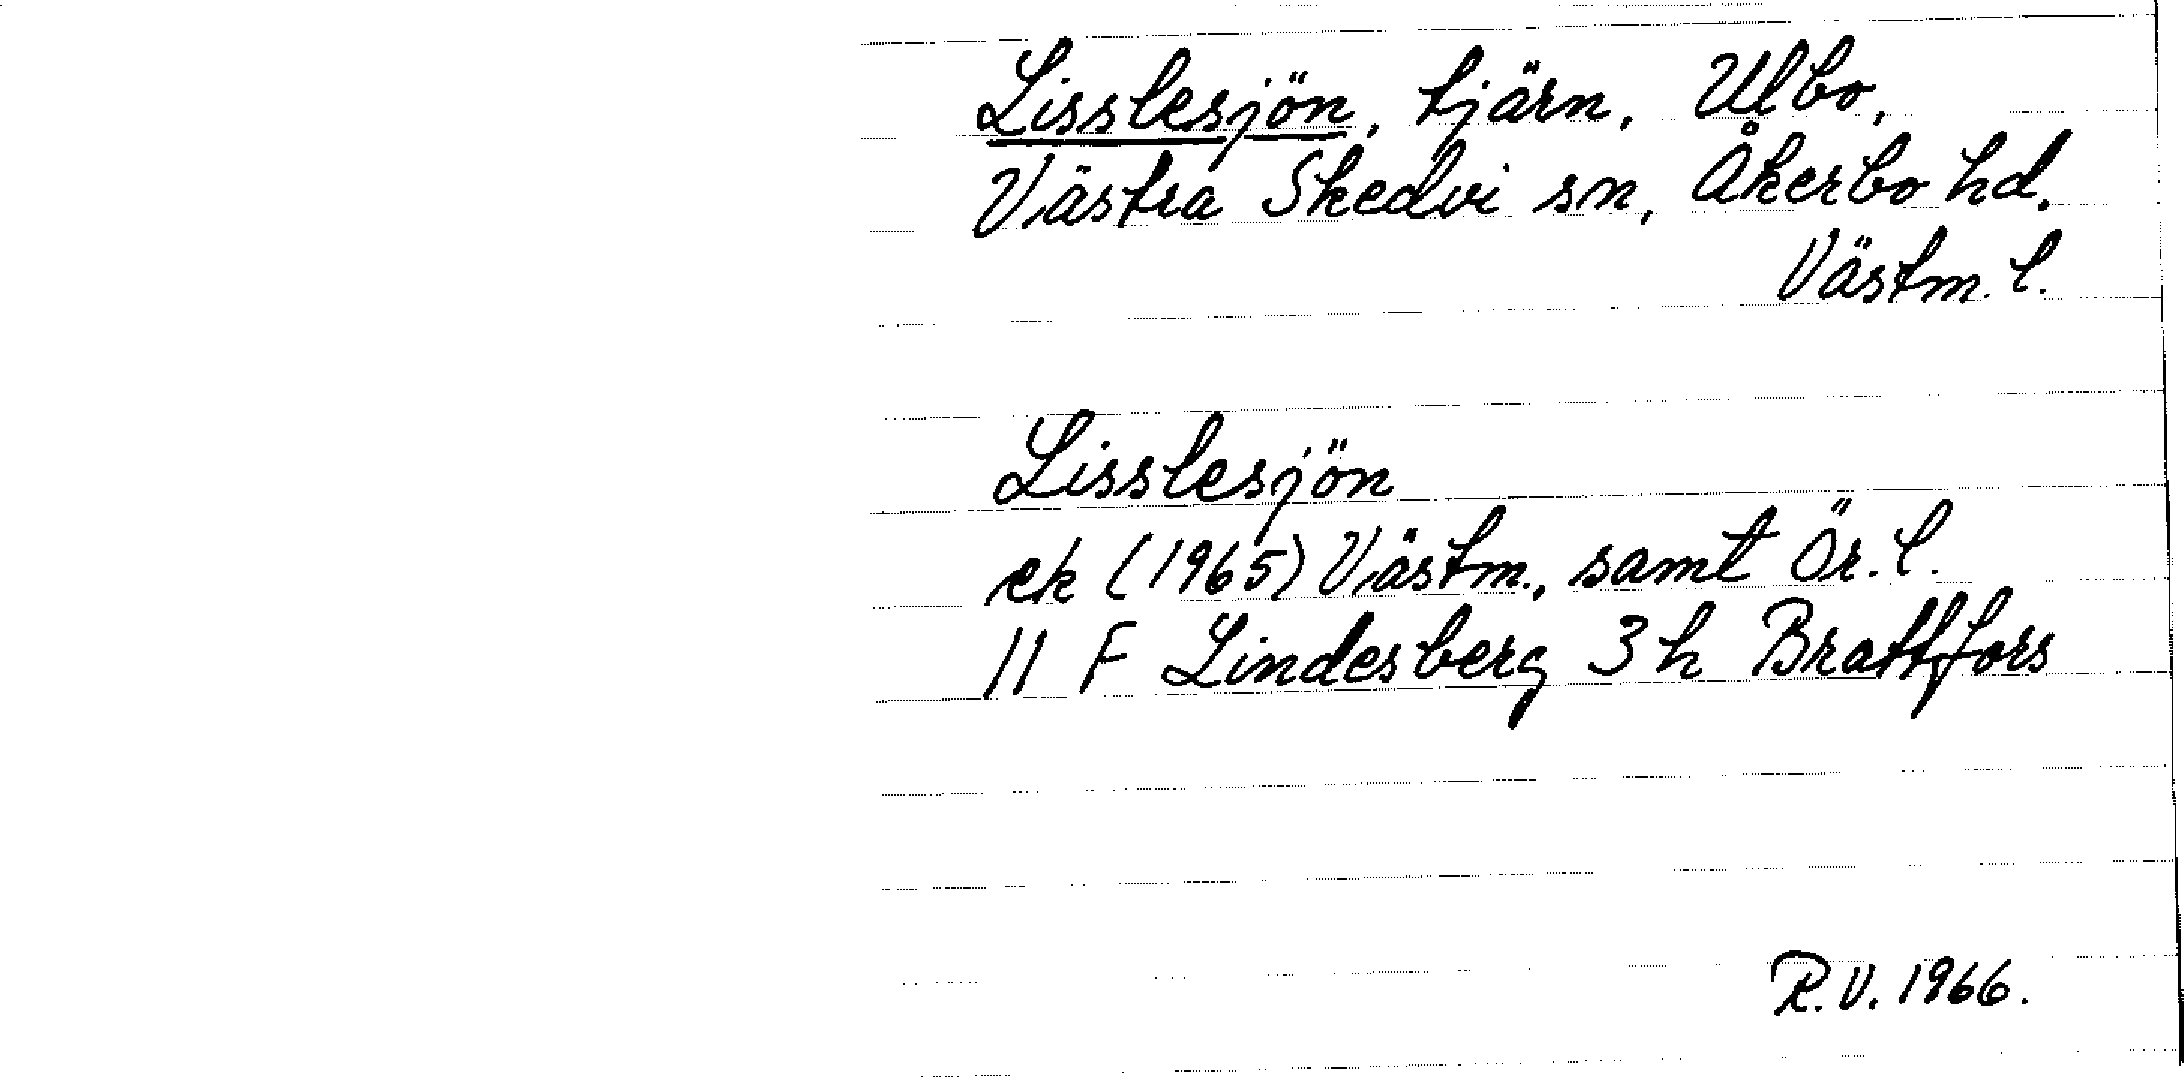 Lisslesjön, tjärn, Ulbo,
Västra Skedvi sn, Åkerbo hd.
Västm. l.
Lisslesjön
ek (1965) Västm., samt Ör. l.
11 F Lindesberg 3 h Brattfors
R.V. 1966.